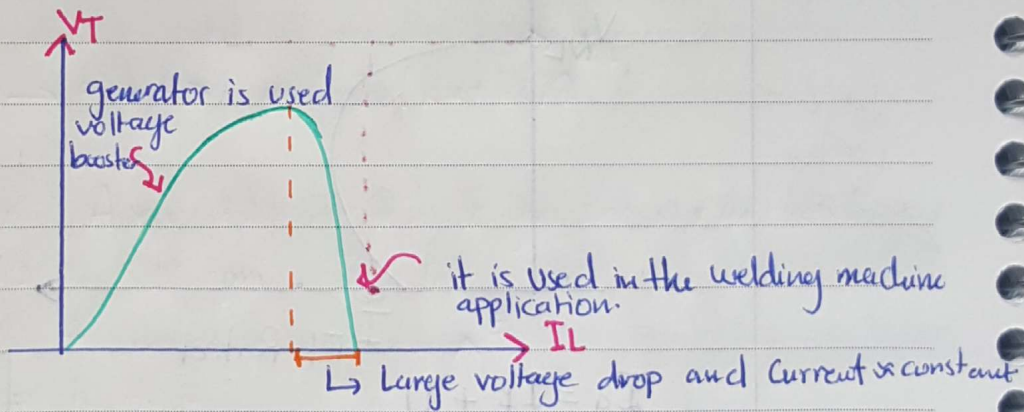 VT
generator is used
voltage
booster
it is used in the welding machine
application.
IL
↳ Large voltage drop and Current ≈ constant